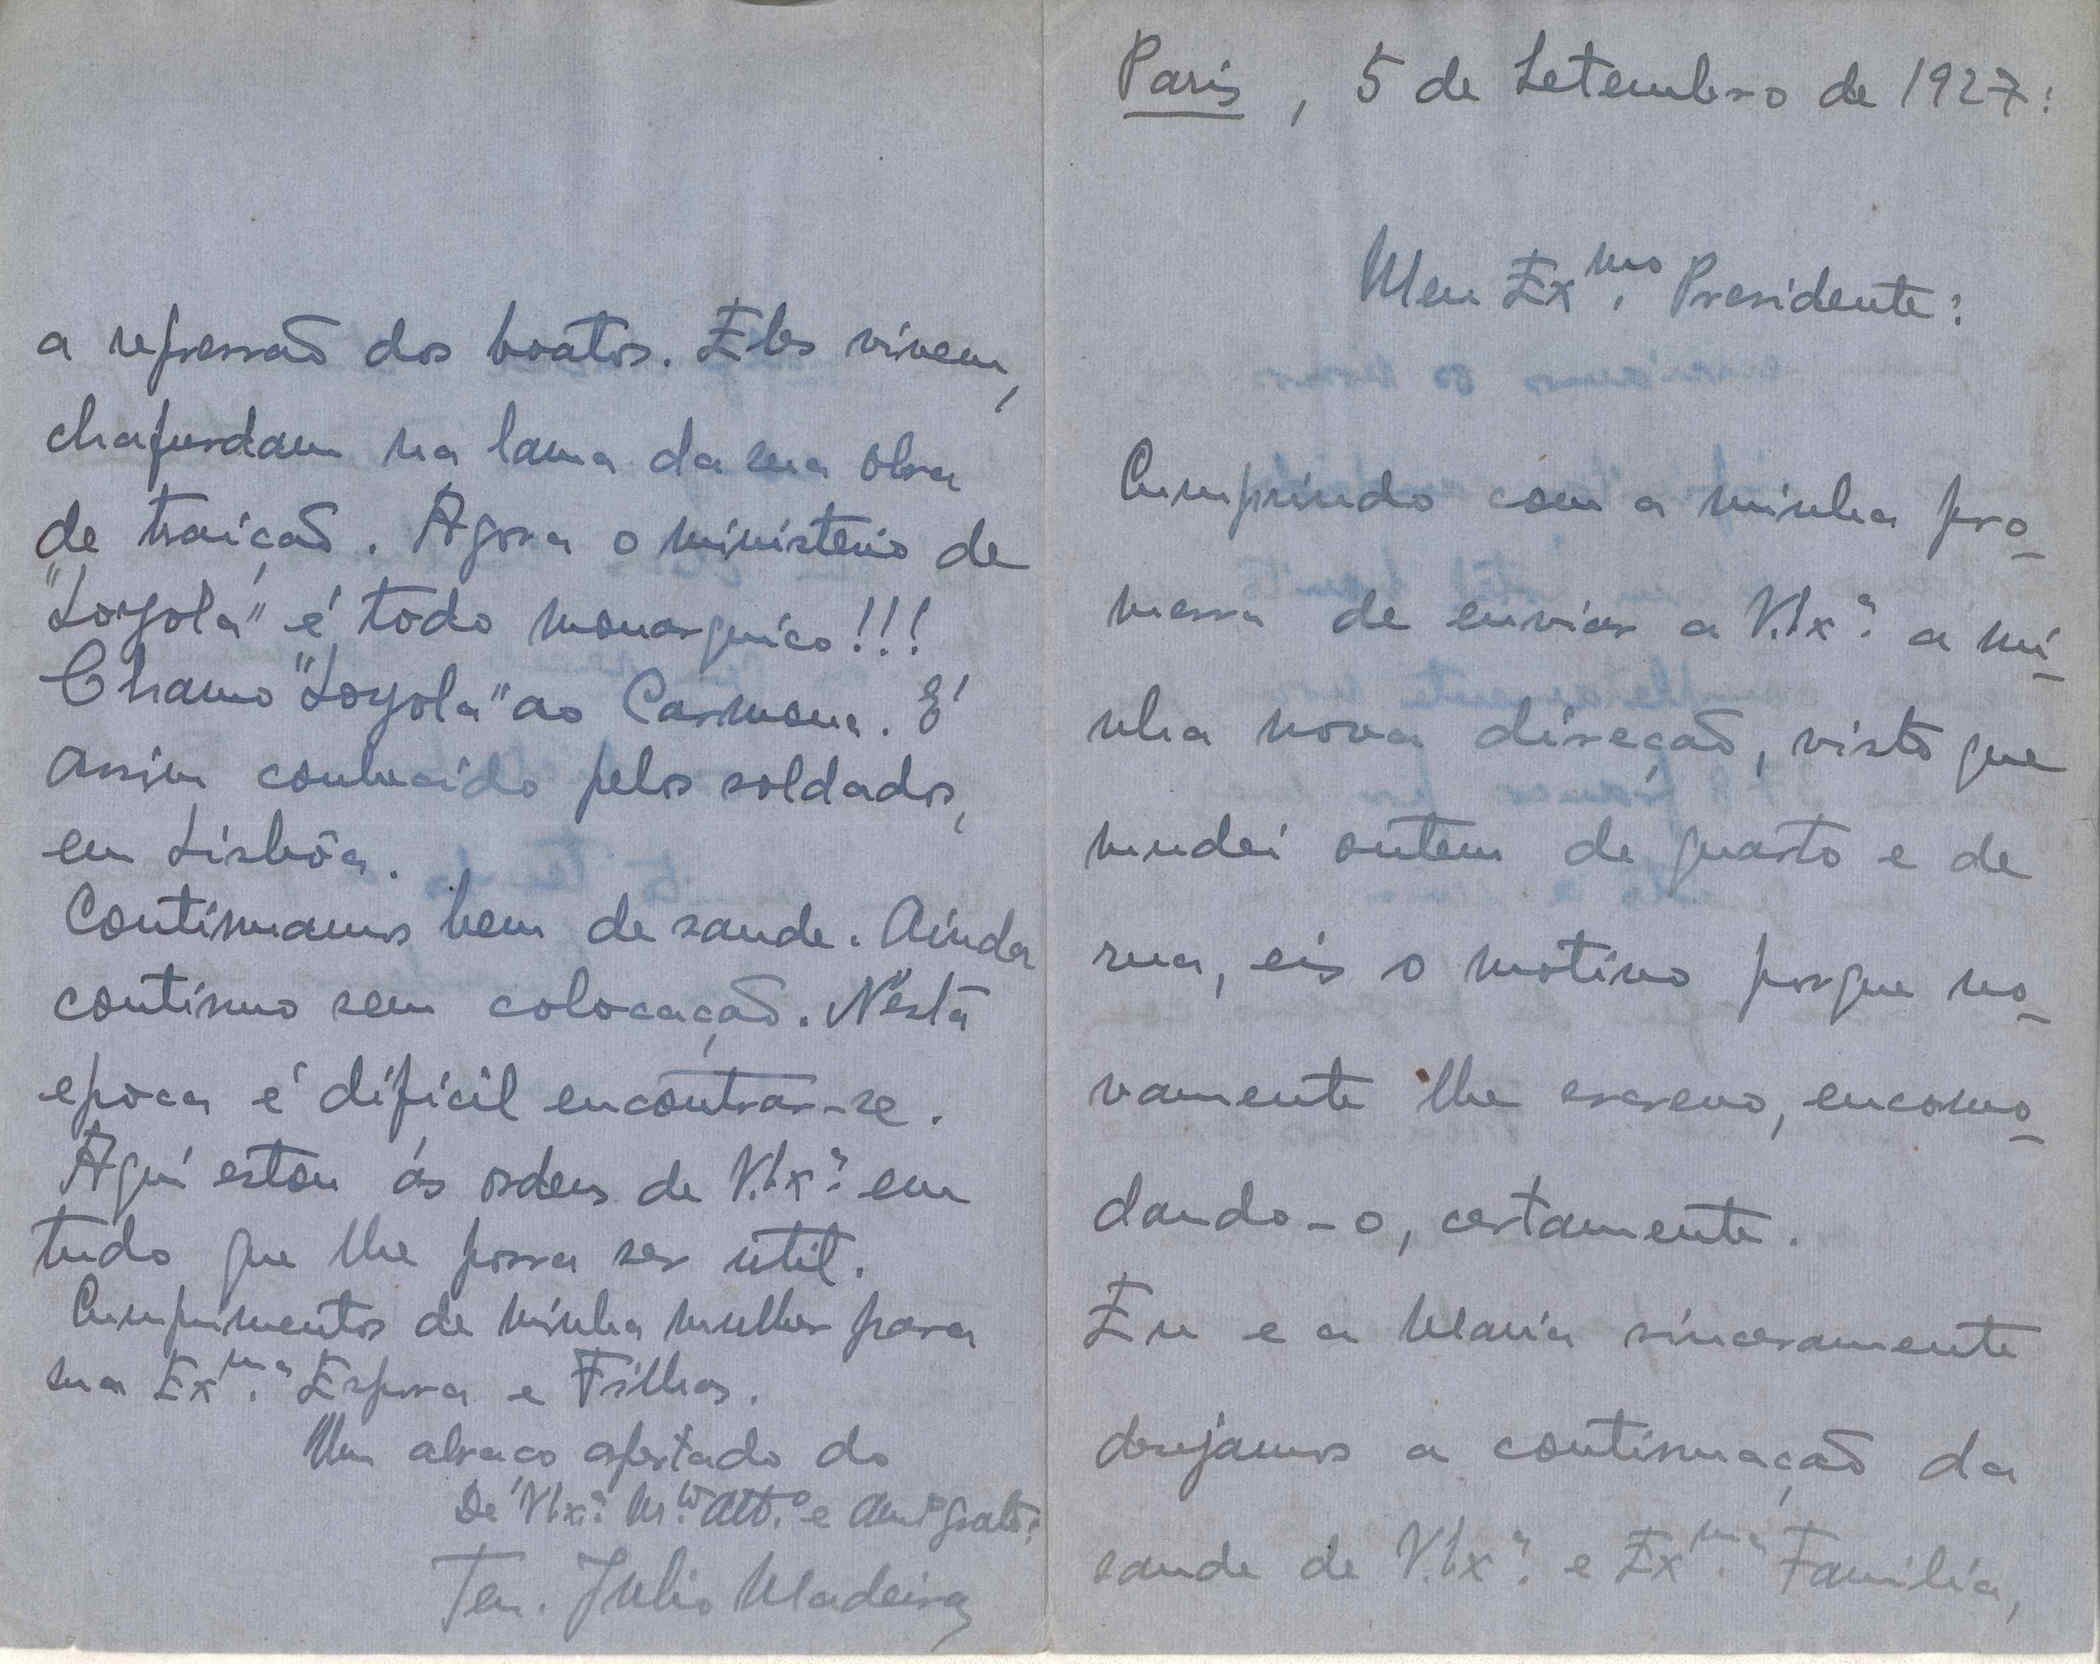 Paris, 5 de Setembro de 1927:
Meu Ex.mo Presidente:
Cumprindo com a minha pro-
messa de enviar a V.Ex.a a mi-
nha nova direção, visto que
mudei ontem de quarto e de
rua, eis o motivo porque no-
vamente lhe escrevo, encomo-
dando-o, certamente.
Eu e a Maria sinceramente
desejamos a continuação da
saude de V.Ex.a e Ex.ma Familia,
a repressão dos boatos. Eles vivem,
chafurdam na lama da sua obra
de traição. Agora o ministerio de
"Loyola" é todo monarquico!!!
Chamo "Loyola" ao Carmona. É
assim conhecido pelos soldados,
em Lisbôa.
Continuamos bem de saude. Ainda
continuo sem colocação. N'esta
epoca é dificil encontrar-se.
Aqui estou ás ordens de V.Ex.a em
tudo que lhe possa ser util.
Cumprimentos de minha mulher para
sua Ex.ma Esposa e Filhos.
Um abraço apertado do
De V.Ex.a M.to Att.o e Am.o Grato:
Ten. Julio Madeira